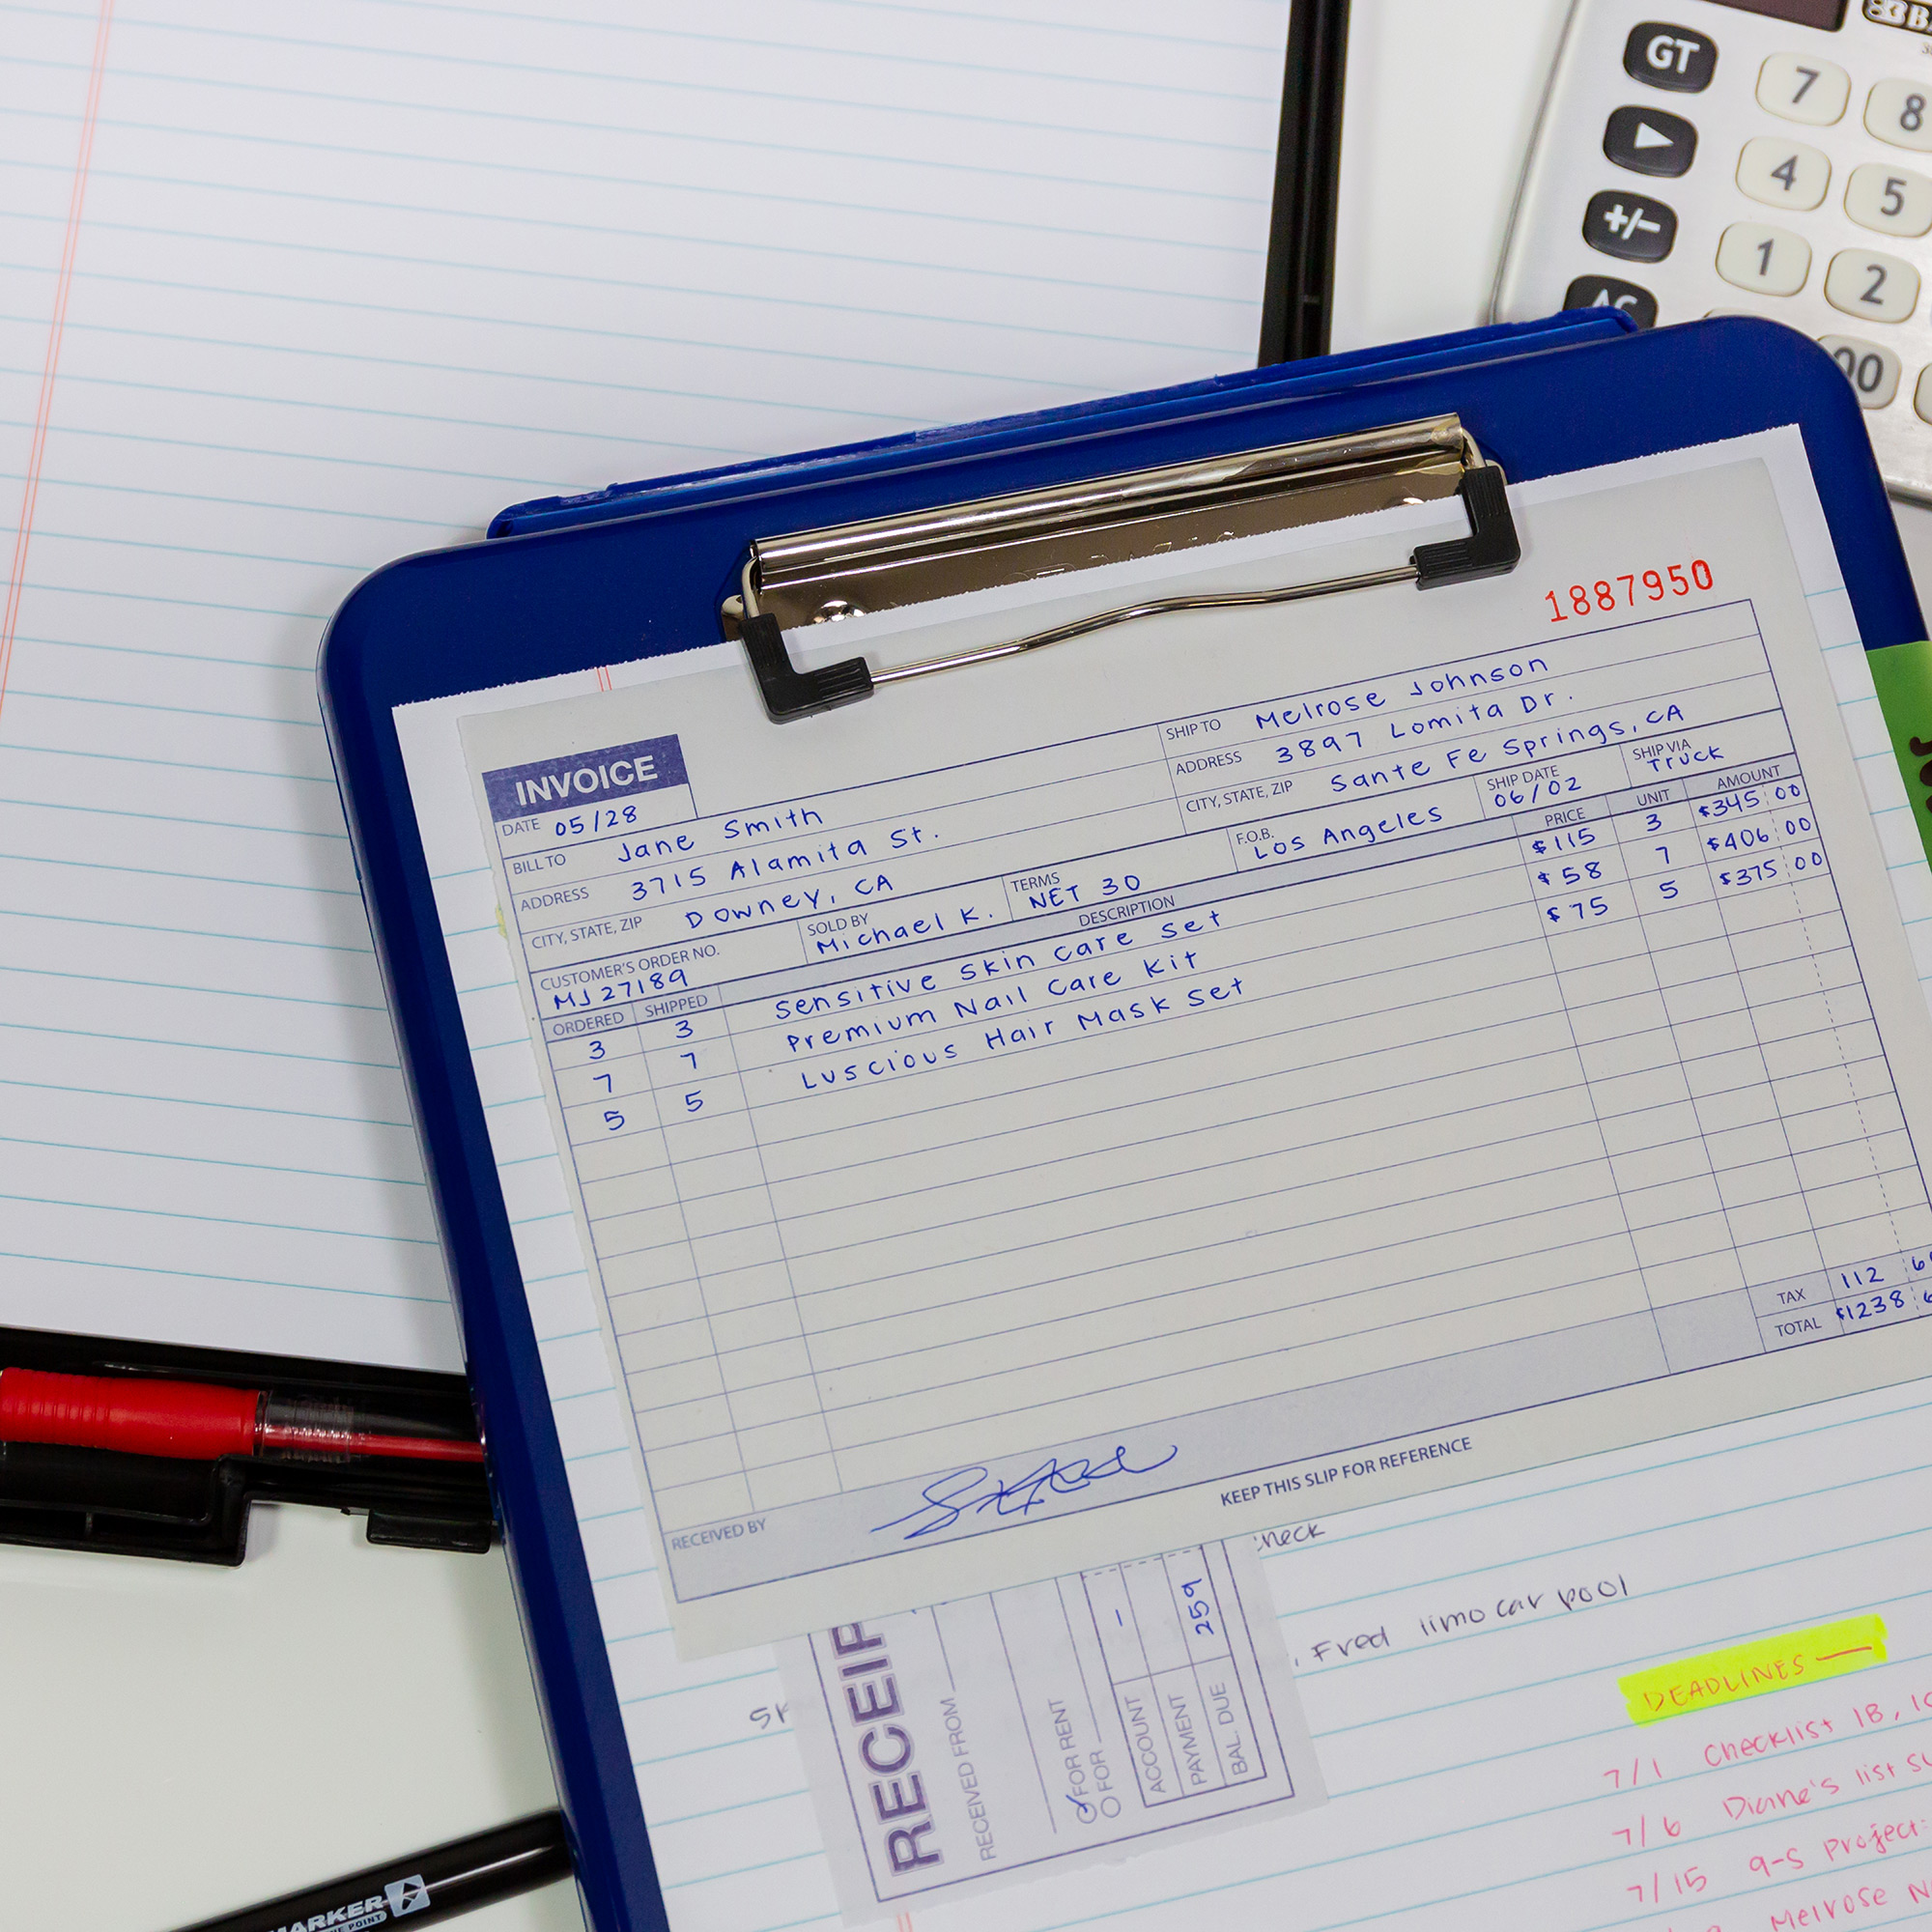 GT
7
8
4
5
+/-
1
2
00
1887950
INVOICE
DATE 05/28
BILL TO Jane Smith
ADDRESS 3715 Alamita St.
CITY, STATE, ZIP Downey, CA
SHIP TO Melrose Johnson
ADDRESS 3897 Lomita Dr.
CITY, STATE, ZIP Sante Fe Springs, CA
CUSTOMER'S ORDER NO. MJ27189
SOLD BY Michael K.
TERMS NET 30
F.O.B. Los Angeles
SHIP DATE 06/02
SHIP VIA Truck
ORDERED SHIPPED DESCRIPTION PRICE UNIT AMOUNT
3 3 Sensitive Skin Care Set $115 3 $345 00
7 7 Premium Nail Care Kit $58 7 $406 00
5 5 Luscious Hair Mask Set $75 5 $375 00
TAX 112
TOTAL $1238
RECEIVED BY
KEEP THIS SLIP FOR REFERENCE
RECEIP
RECEIVED FROM
FOR RENT
FOR
ACCOUNT –
PAYMENT 259
BAL. DUE
Fred limo car pool
DEADLINES —
7/1 Checklist 1B,
7/6 Diane's list
7/15 9-5 Project:
Melrose
MARKER
POINT